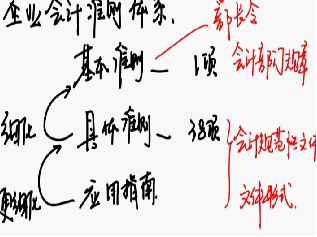 企业会计准则体系.
部长令
基本准则 — 1项 会计部门规章
细化 具体准则 — 38项 会计规范性文件
更细化 应用指南 文件形式.